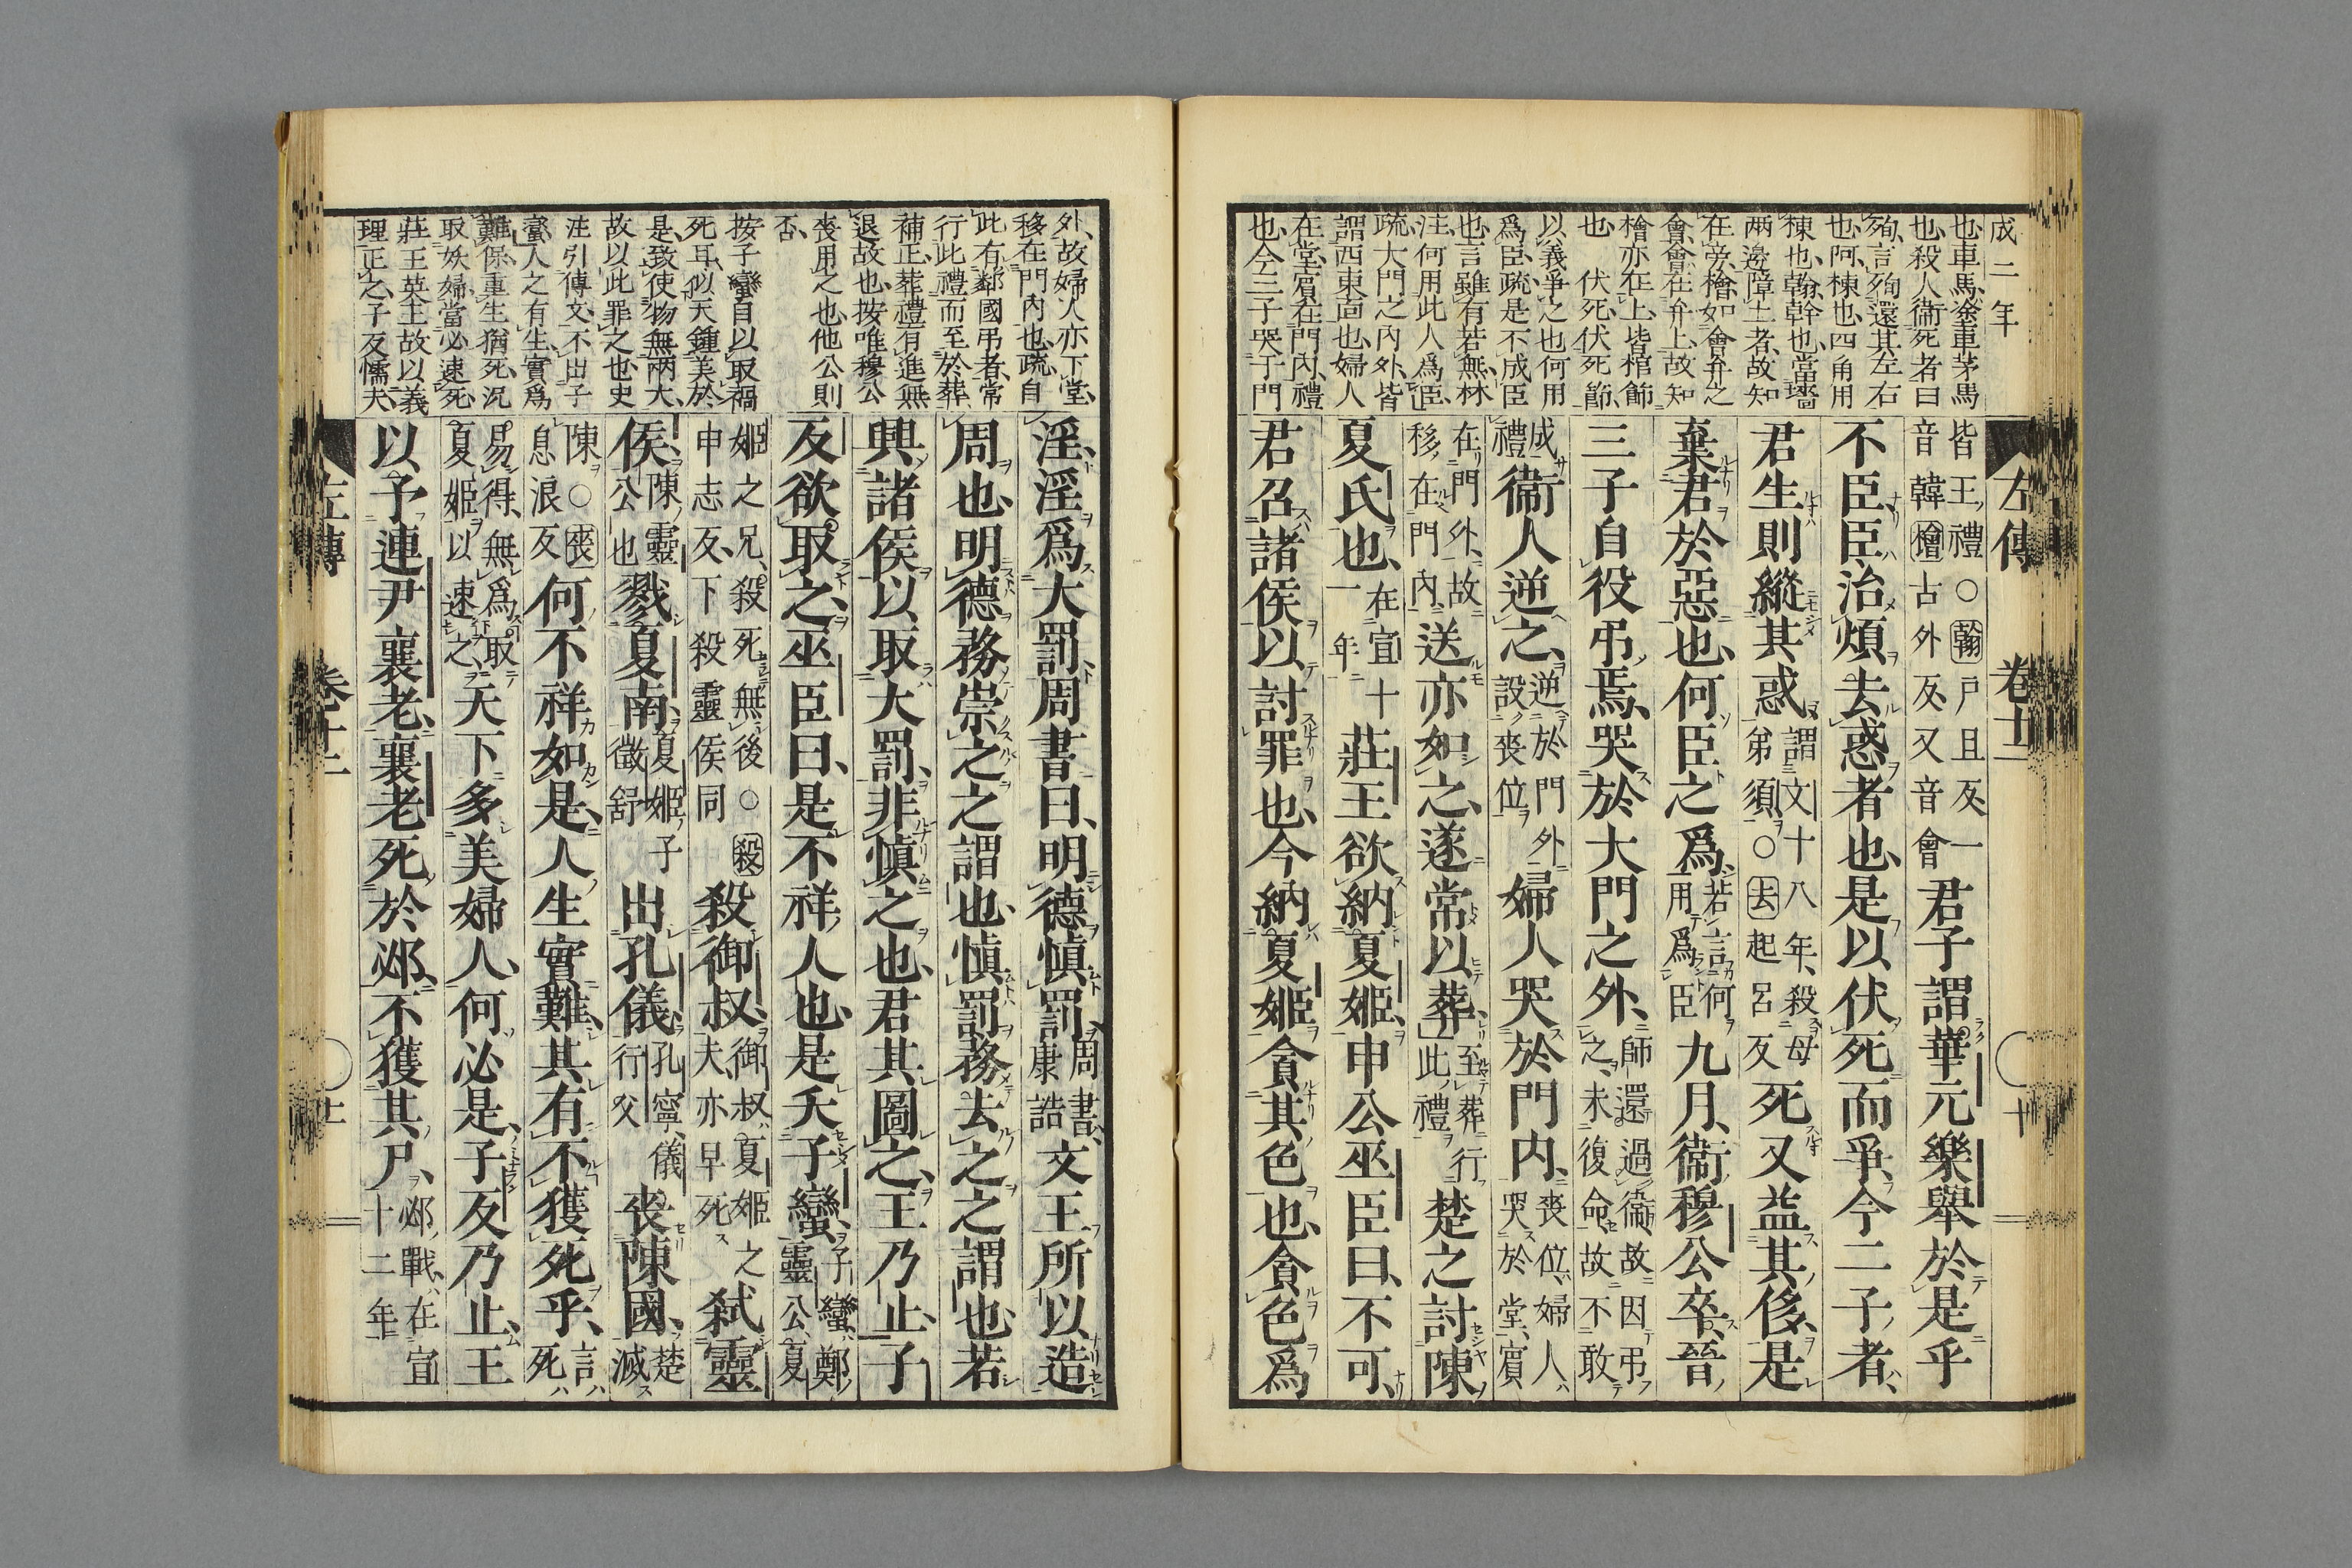 成二年
也車馬塗車茅馬
也殺人衞死者曰
殉言殉還其左右
也阿棟也四角用
棟也翰幹也當牆
兩邊障土者故知
在旁檜如會弁之
會會在弁上故知
檜亦在上皆棺飾
也 伏死伏死節
以義爭之也何用
爲臣疏是不成臣
也言雖有若無林
注何用此人爲臣
疏大門之内外皆
謂西東靣也婦人
在堂賓在門内禮
也今三子哭于門
左傳 卷十二 十
皆王禮○翰戸旦反一
音韓檜古外反又音會
君子謂華元樂舉於是乎
不臣臣治煩去惑者也是以伏死而爭今二子者
君生則縱其惑
謂文十八年殺母
弟須○去起呂反
死又益其侈是
棄君於惡也何臣之爲
若言何
用爲臣
九月衞穆公卒晉
三子自役弔焉哭於大門之外
師還過衞故因弔
之未復命故不敢
成
禮
衞人逆之
逆於門外
設喪位
婦人哭於門内
喪位婦人
哭於堂賓
在門外故
移在門内
送亦如之遂常以葬
至葬行
此禮
楚之討陳
夏氏也
在宣十
一年
莊王欲納夏姬申公巫臣曰不可
君召諸侯以討罪也今納夏姬貪其色也貪色爲
外故婦人亦下堂
移在門内也疏自
此有鄰國弔者常
行此禮而至於葬
補正葬禮有進無
退故也按唯穆公
喪用之也他公則
否
按子蠻自以取禍
死耳似天鍾美於
是致使物無兩大
故以此罪之也史
注引傳文不出子
蠻人之有生實爲
難保重生猶死況
取妖婦當必速死
莊王英主故以義
理正之子反懦夫
淫淫爲大罰周書曰明德愼罰
周書
康誥
文王所以造
周也明德務崇之之謂也愼罰務去之之謂也若
興諸侯以取大罰非愼之也君其圖之王乃止子
反欲取之巫臣曰是不祥人也是夭子蠻
子蠻鄭
靈公夏
姬之兄殺死無後○殺
申志反下殺靈侯同
殺御叔
御叔夏姬之
夫亦早死
弑靈
侯
陳靈
公也
戮夏南
夏姬子
徵舒
出孔儀
孔寧儀
行父
喪陳國
楚滅
陳○喪
息浪反
何不祥如是人生實難其有不獲死乎
言
死
易得無爲取
夏姬以速之
天下多美婦人何必是子反乃止王
以予連尹襄老襄老死於邲不獲其尸
邲戰在宣
十二年
左傳 卷十二